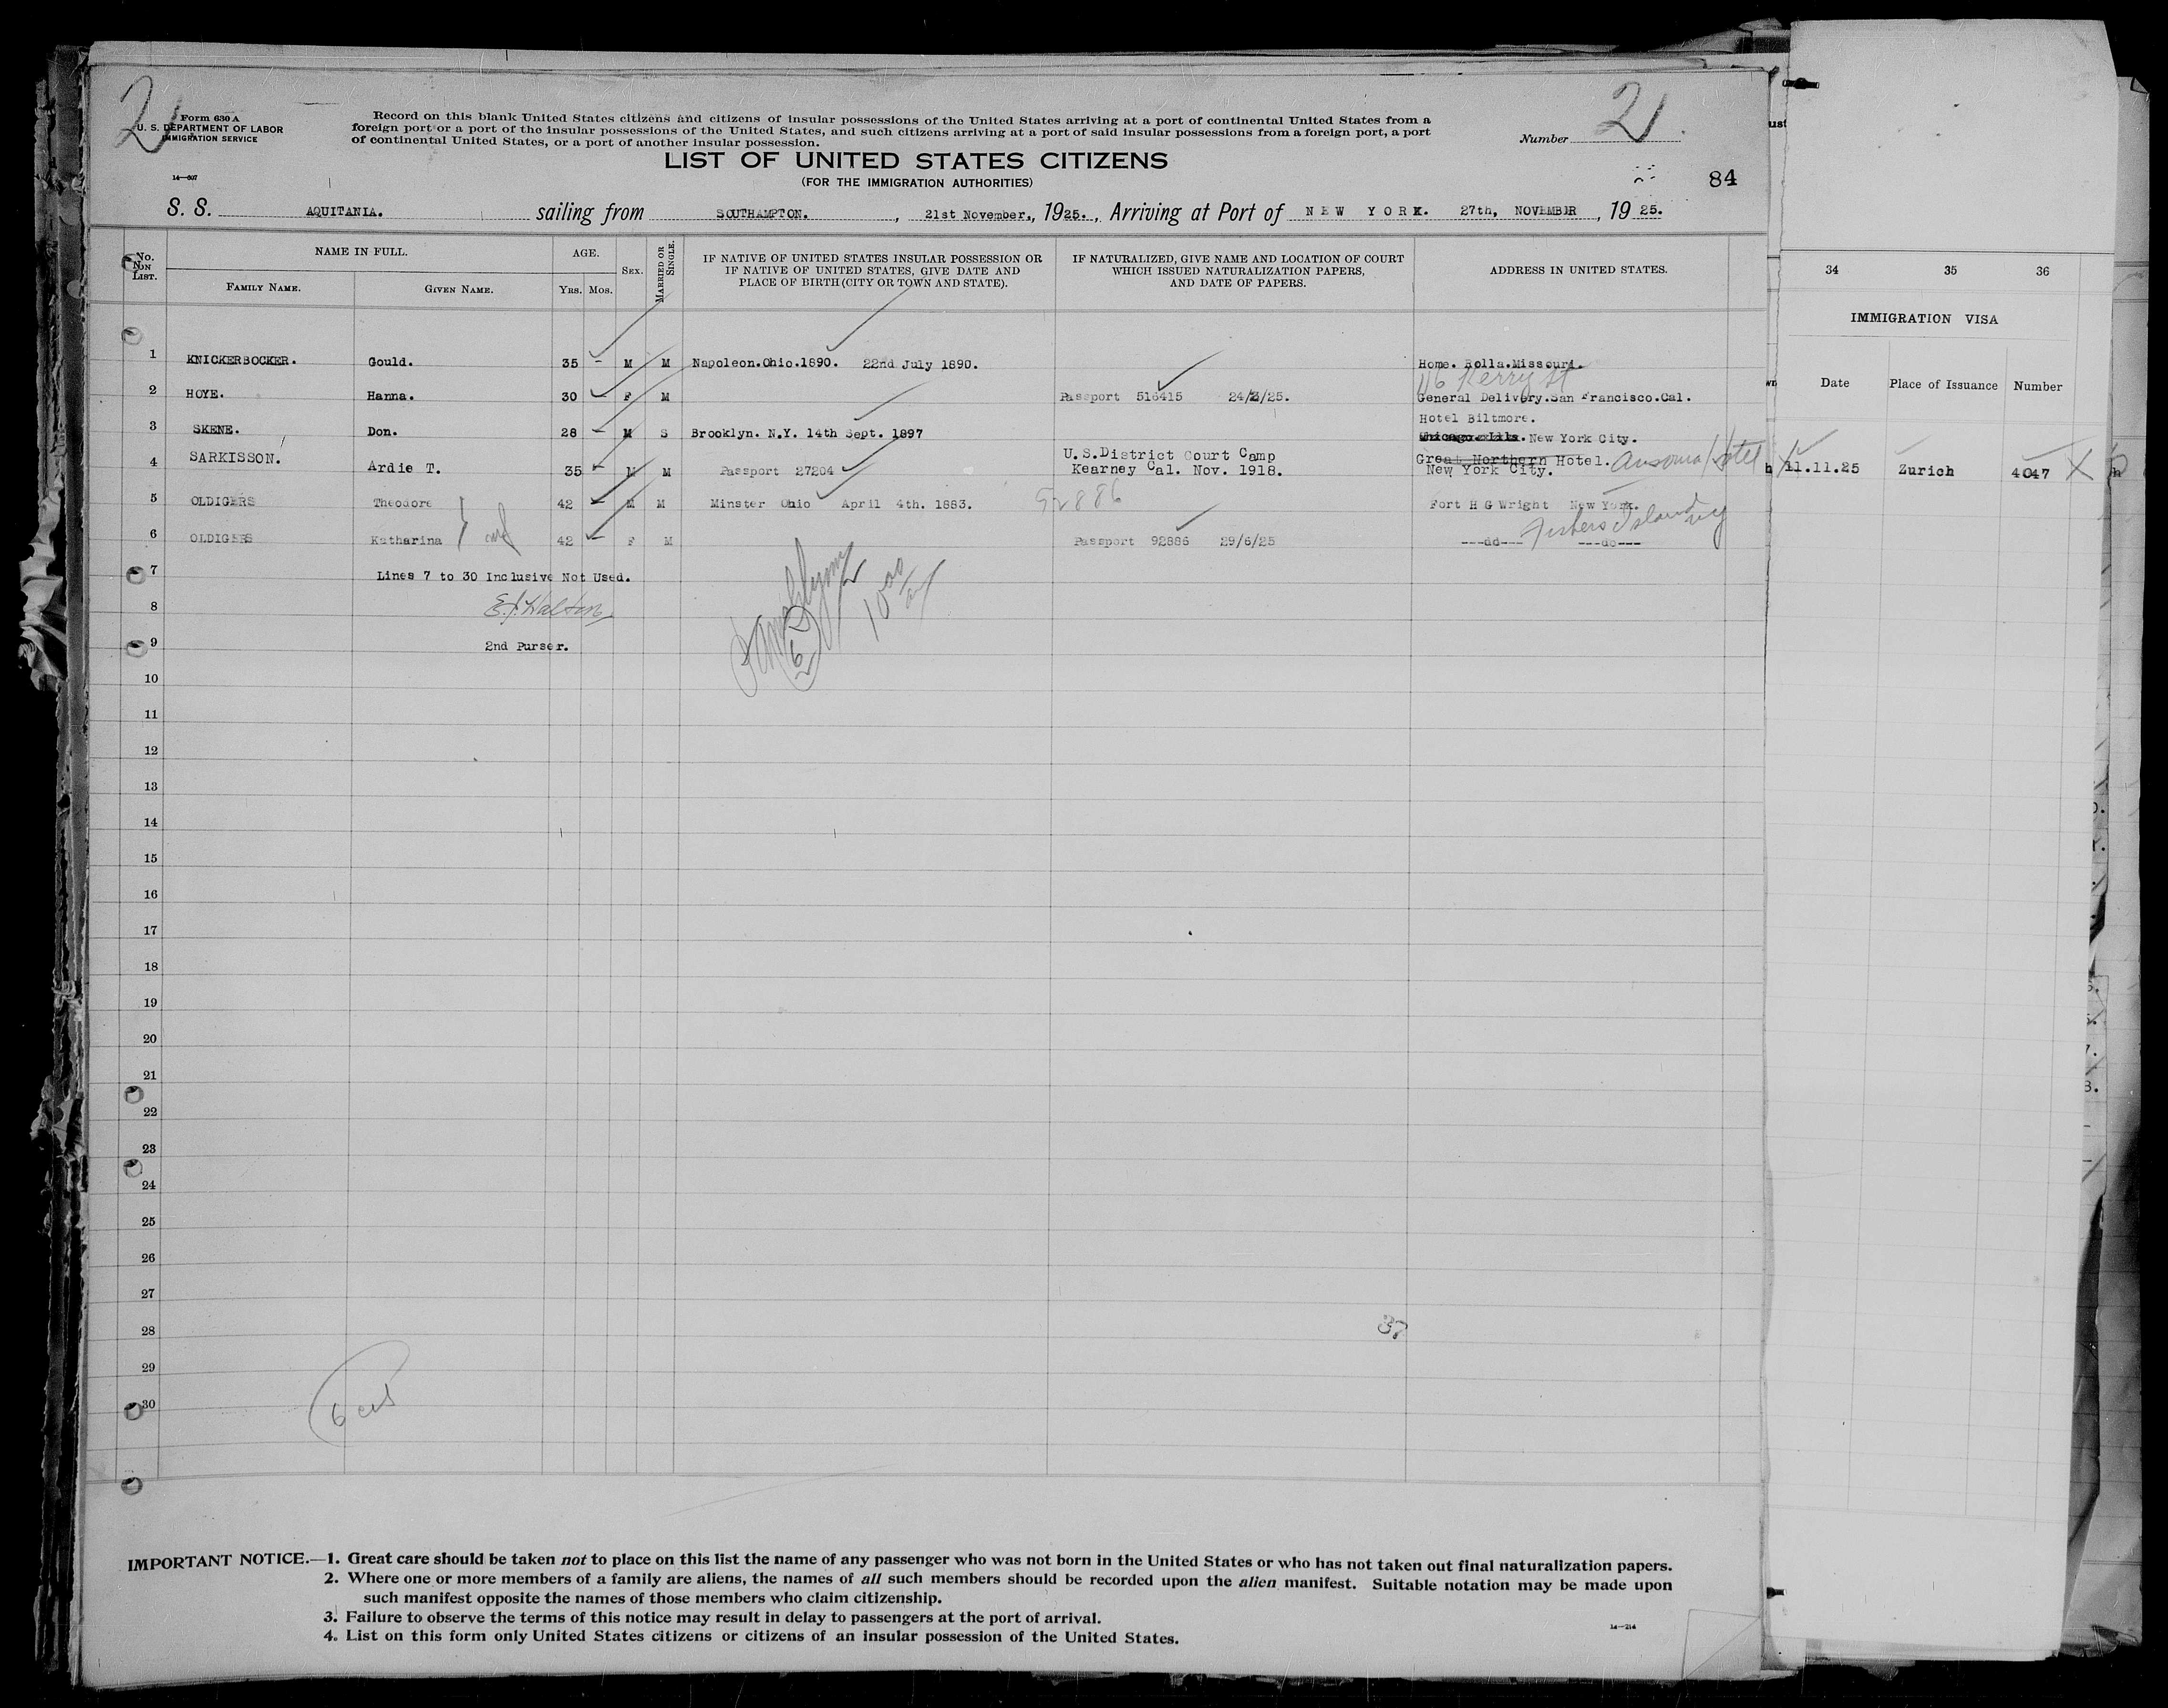 2
Form 630 A
U. S. DEPARTMENT OF LABOR
IMMIGRATION SERVICE
14—607
Record on this blank United States citizens and citizens of insular possessions of the United States arriving at a port of continental United States from a
foreign port or a port of the insular possessions of the United States, and such citizens arriving at a port of said insular possessions from a foreign port, a port
of continental United States, or a port of another insular possession.
Number 21
LIST OF UNITED STATES CITIZENS
(FOR THE IMMIGRATION AUTHORITIES)
84
S. S. AQUITANIA. sailing from SOUTHAMPTON. , 21st November., 1925., Arriving at Port of NEW YORK. 27th, NOVEMBER , 19 25.
No. ON LIST.
NAME IN FULL.
FAMILY NAME. GIVEN NAME.
AGE.
YRS. MOS.
SEX.
MARRIED OR SINGLE.
IF NATIVE OF UNITED STATES INSULAR POSSESSION OR
IF NATIVE OF UNITED STATES, GIVE DATE AND
PLACE OF BIRTH (CITY OR TOWN AND STATE).
IF NATURALIZED, GIVE NAME AND LOCATION OF COURT
WHICH ISSUED NATURALIZATION PAPERS,
AND DATE OF PAPERS.
ADDRESS IN UNITED STATES.
1 KNICKERBOCKER. Gould. 35 - M M Napoleon.Ohio.1890. 22nd July 1890. Home. Rolla.Missouri.
116 Kerry St
2 HOYE. Hanna. 30 - F M Passport 516415 24/3/25. General Delivery.San Francisco.Cal.
Hotel Biltmore.
3 SKENE. Don. 28 - M S Brooklyn. N.Y. 14th Sept. 1897 Chicago. Ills. New York City.
4 SARKISSON. Ardie T. 35 - M M Passport 27204 U.S.District Court Camp
Kearney Cal. Nov. 1918. Great Northern Hotel. Ansonia Hotel
New York City.
5 OLDIGERS Theodore 42 - M M Minster Ohio April 4th. 1883. 92886 Fort H G Wright New York.
Fishers Island NY
6 OLDIGERS Katharina 42 - F M Passport 92886 29/6/25 ---do--- ---do---
7 Lines 7 to 30 Inclusive Not Used.
8 E.J. Walton
9 2nd Purser.
6
10 00
10
11
12
13
14
15
16
17
18
19
20
21
22
23
24
25
26
27
28 37
29
30
6 cits
IMPORTANT NOTICE.—1. Great care should be taken not to place on this list the name of any passenger who was not born in the United States or who has not taken out final naturalization papers.
2. Where one or more members of a family are aliens, the names of all such members should be recorded upon the alien manifest. Suitable notation may be made upon
such manifest opposite the names of those members who claim citizenship.
3. Failure to observe the terms of this notice may result in delay to passengers at the port of arrival.
4. List on this form only United States citizens or citizens of an insular possession of the United States.
14—214
34 35 36
IMMIGRATION VISA
Date Place of Issuance Number
11.11.25 Zurich 4047